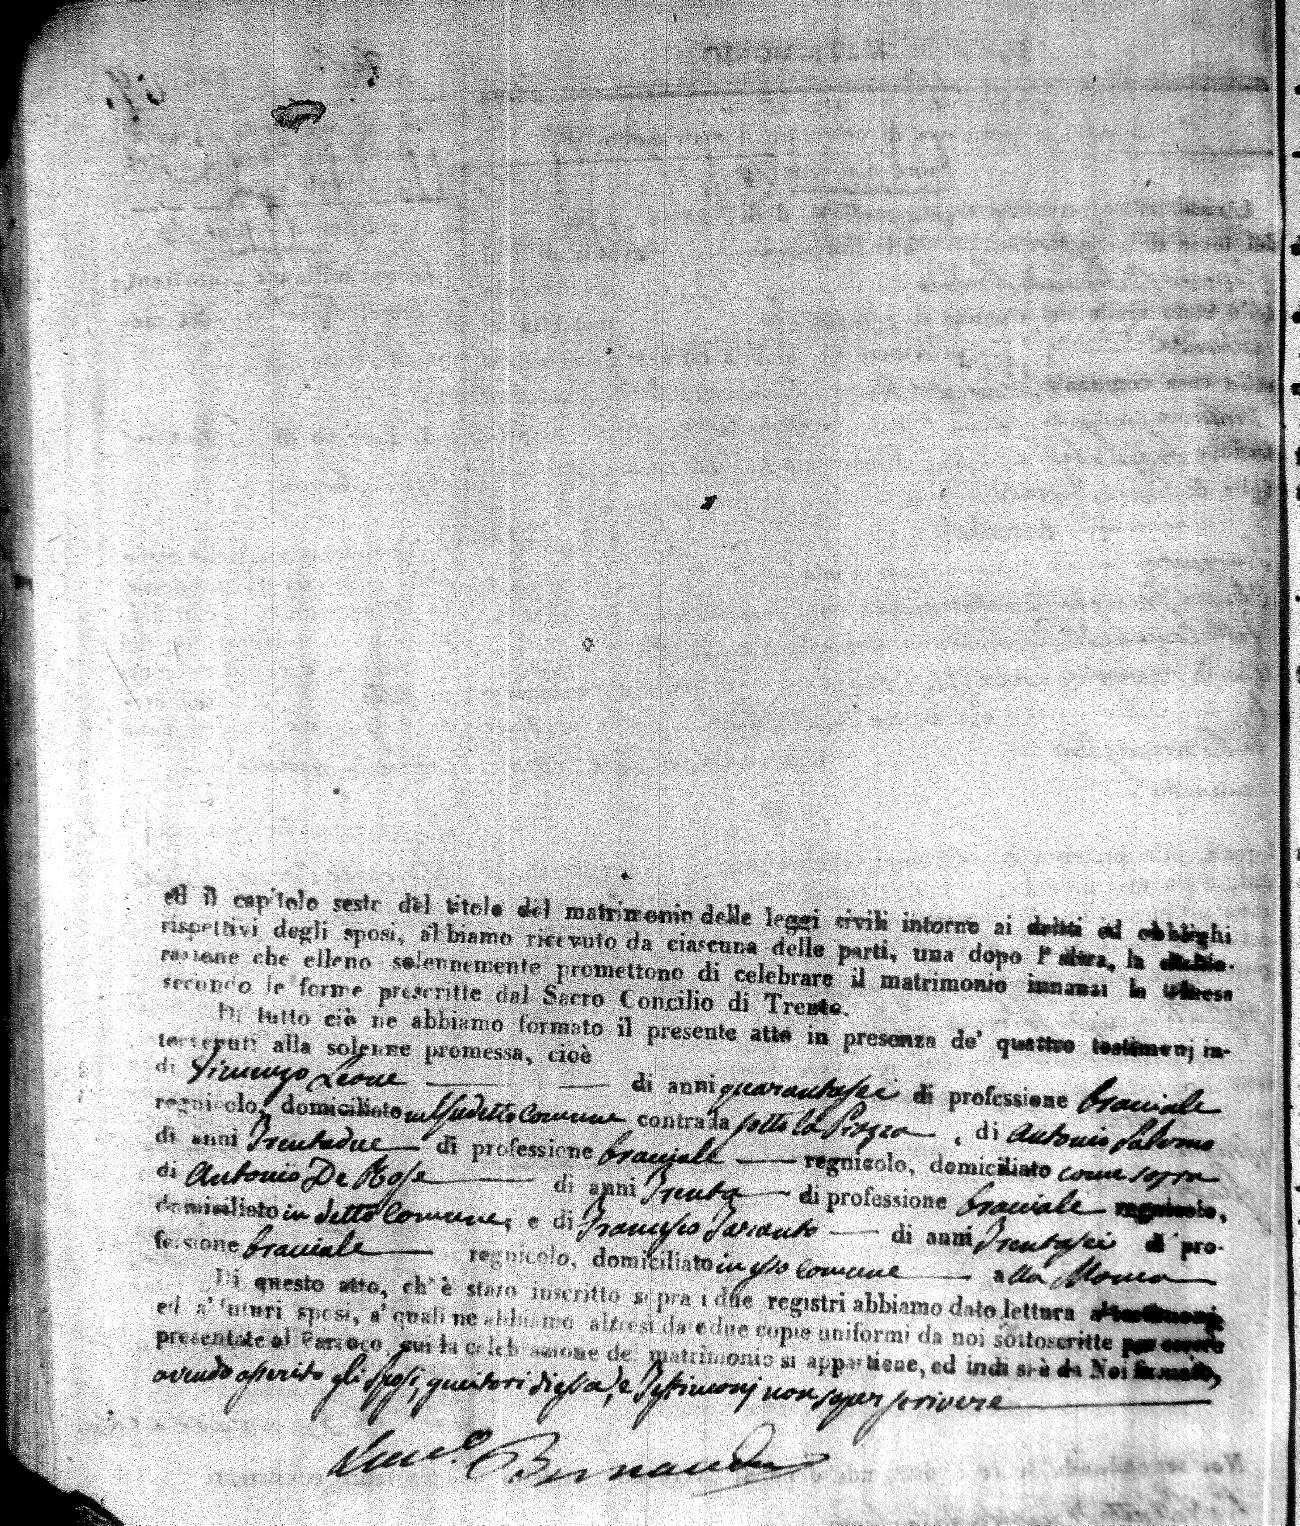 ed il capitolo sesto del titolo del matrimonio delle leggi civili intorno ai dritti ed obblighi
rispettivi degli sposi, abbiamo ricevuto da ciascuna delle parti, una dopo l'altra, la dichia-
razione che elleno solennemente promettono di celebrare il matrimonio innanzi la Chiesa
secondo le forme prescritte dal Sacro Concilio di Trento.
Di tutto ciò ne abbiamo formato il presente atto in presenza de' quattro testimonj in-
tervenuti alla solenne promessa, cioè
di Vincenzo Leone di anni quarantasei di professione bracciale
regnicolo, domiciliato nel sudetto Comune contrada sotto la Piazza, di Antonio Palermo
di anni Trentadue di professione bracciale regnicolo, domiciliato come sopra
di Antonio De Rose di anni Trenta di professione bracciale regnicolo,
domiciliato in detto Comune, e di Francesco Taranto di anni Trentasei di pro-
fessione bracciale regnicolo, domiciliato in esso Comune alla
Di questo atto, ch'è stato inscritto sopra i due registri abbiamo dato lettura a' testimonj
ed a' futuri sposi, a' quali ne abbiamo altresì date due copie uniformi da noi sottoscritte per essere
presentate al Parroco, cui la celebrazione del matrimonio si appartiene, ed indi si è da Noi firmato,
avendo asserito gli Sposi, genitori di essa, e Testimonj non saper scrivere